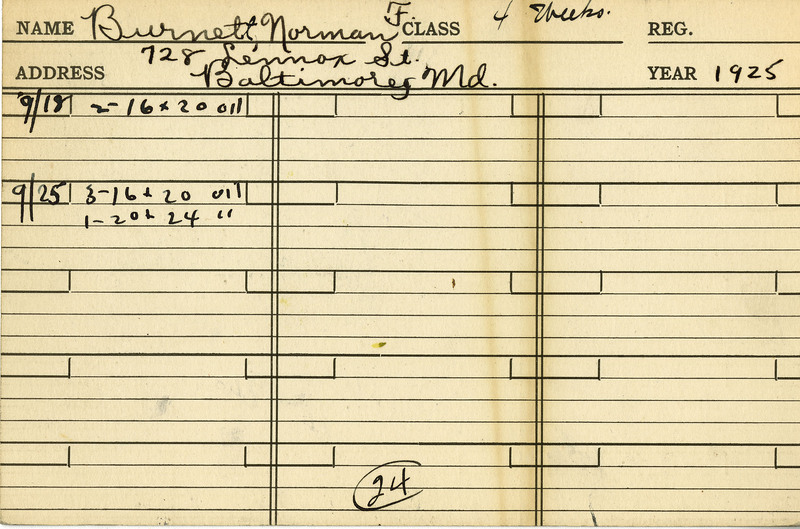 NAME Burnett, Norman F. CLASS 4 Weeks. REG.
ADDRESS 728 Lennox St.
Baltimore, Md. YEAR 1925
9/18 2-16x20 oil
9/25 3-16x20 oil
1-20x24 "
24